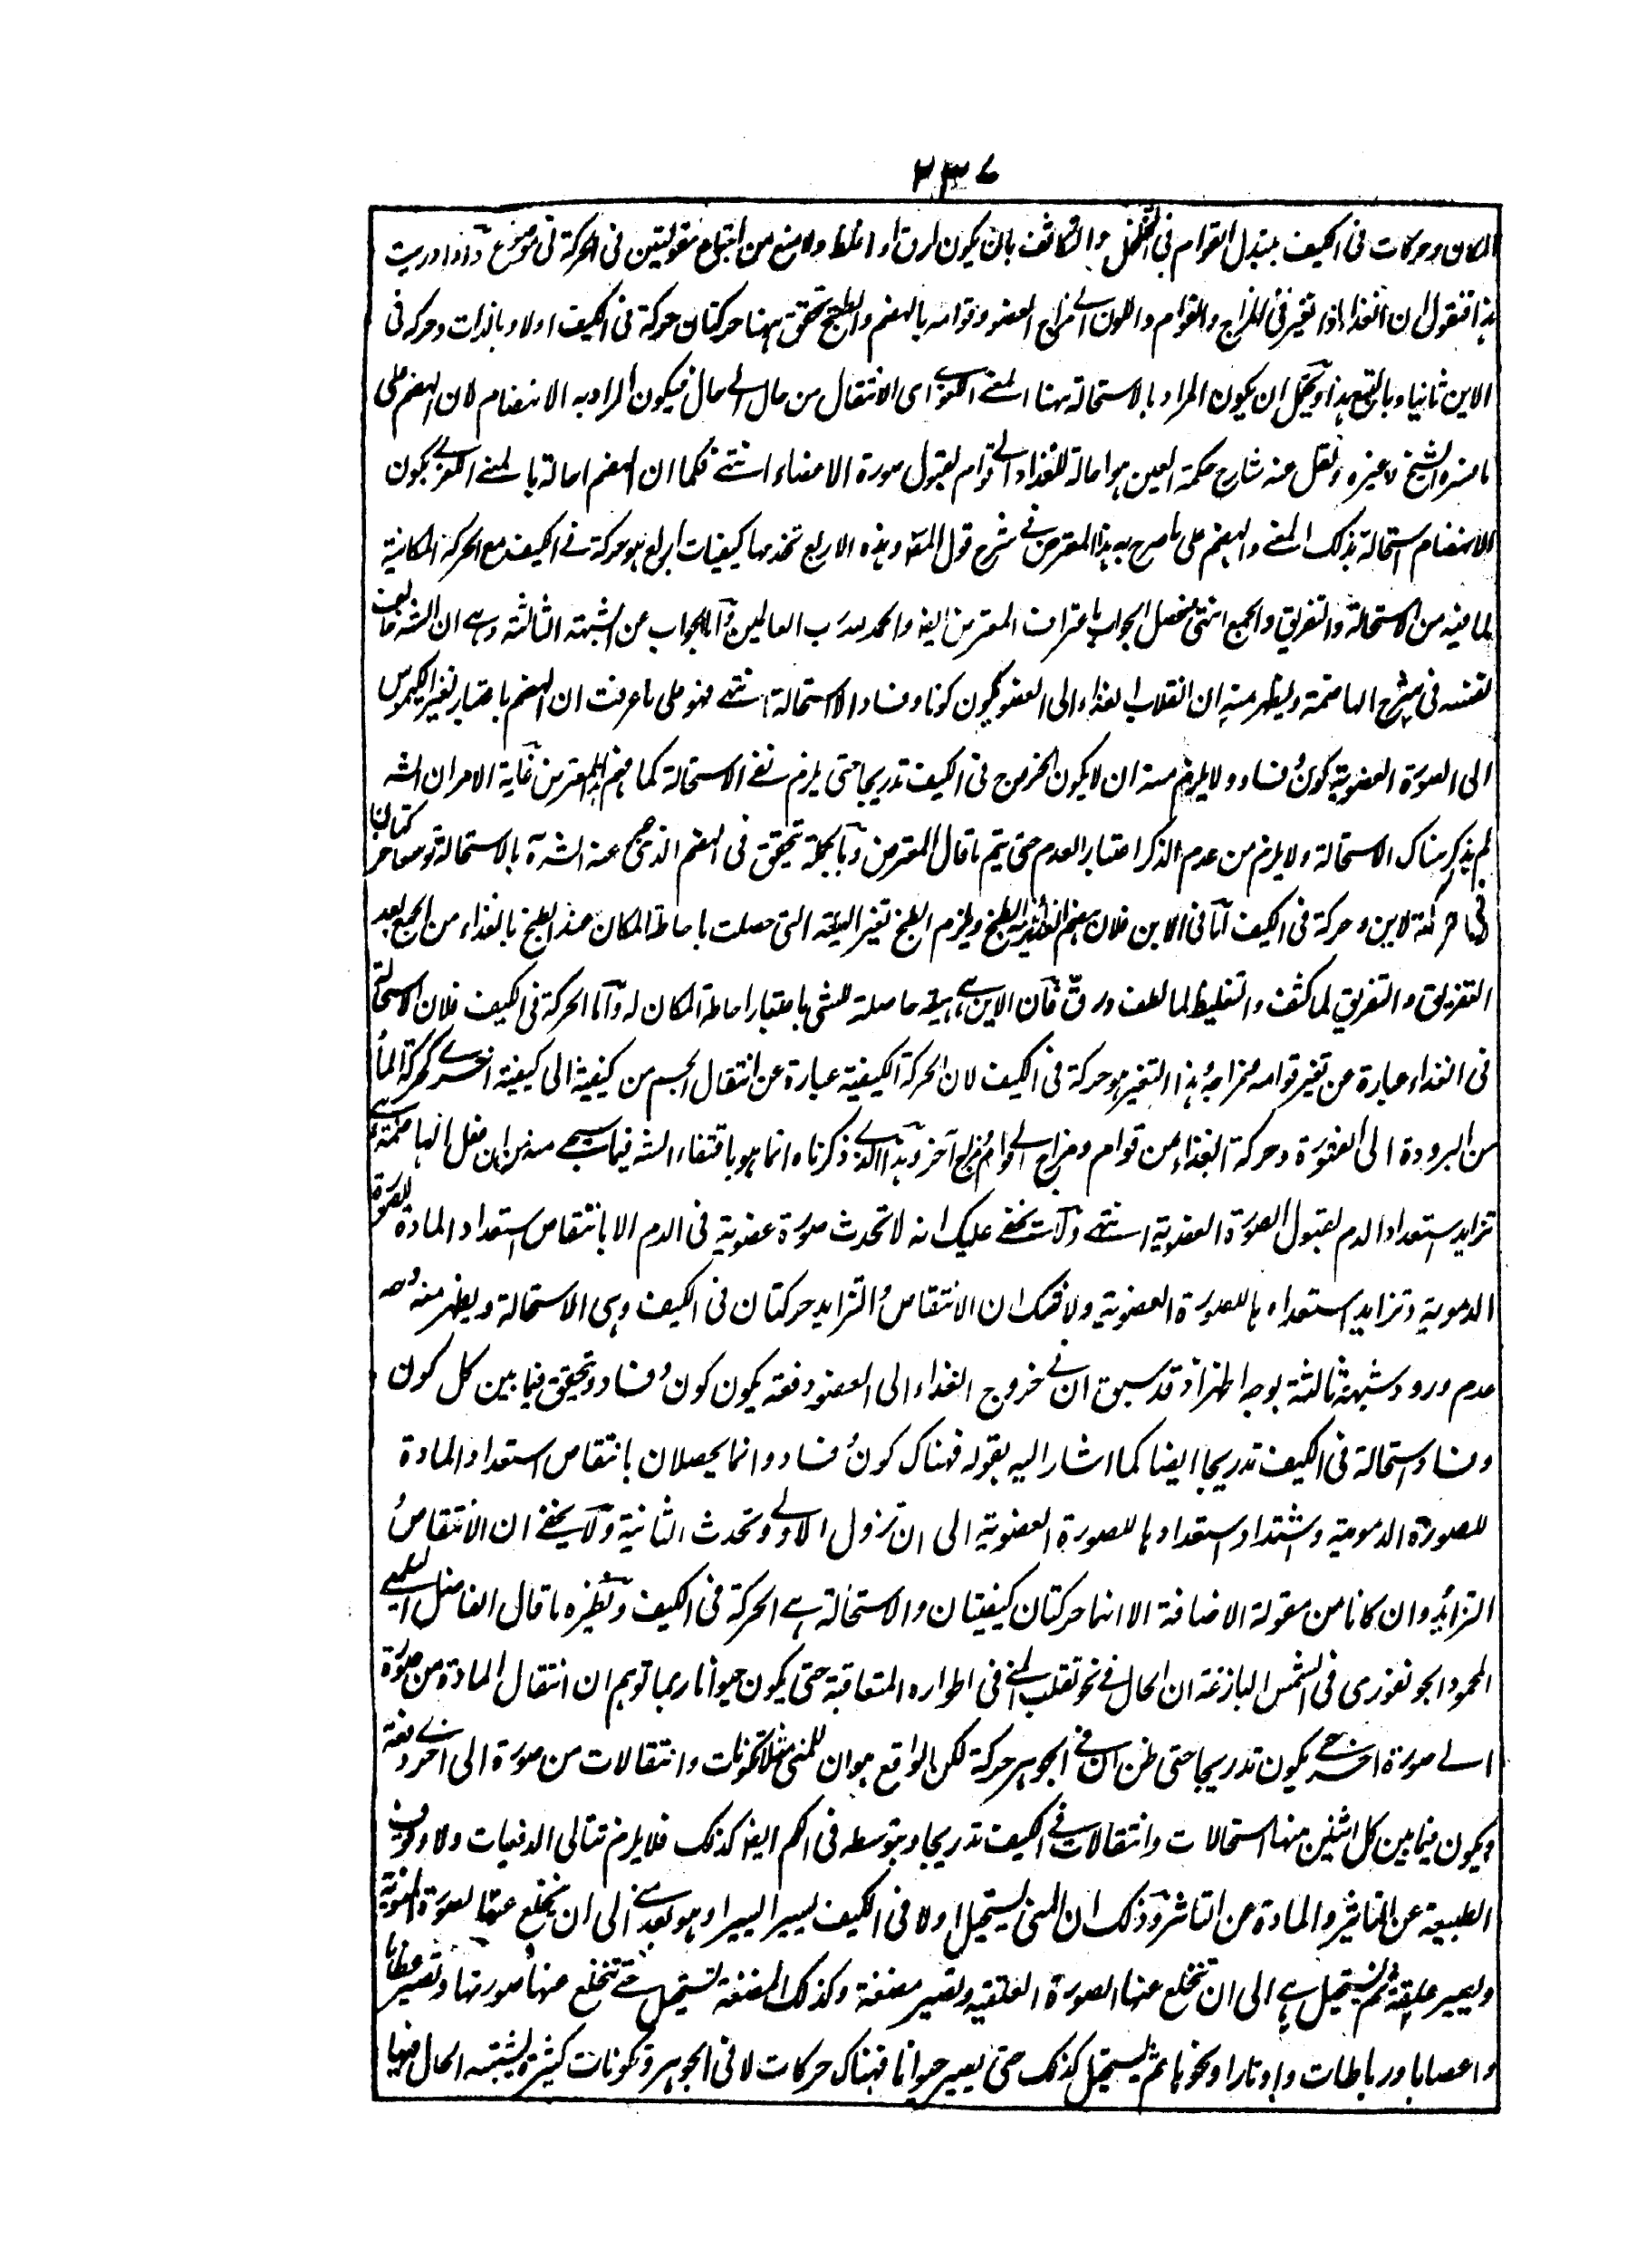 ٢٣٤
المكان وحركات فى الكيف بتبدل القوام فى التخلخل والتكاثف بان يكون ارق او اغلظ ولا منع من اجتماع مقولتين فى الحركة فى موضوع واذا دريت
هذا فنقول ان الغذاء اذا تغير فى المزاج والقوام واللون الے مزاج العضو وقوامه بالهضم والطبخ تحقق ههنا حركتان حركة فى الكيف اولا وبالذات وحركة فى
الاين ثانيا وبالتبع هذا ويحتمل ان يكون المراد بالاستحالة ههنا المعنے اللغوے اى الانتقال من حال الے حال فيكون المراد به الانهضام لان الهضم على
ما فسره الشيخ وغيره ونقل عنه شارح حكمة العين هو احالة للغذاء الے قوام لقبول صورة الاعضاء انتهے فكما ان الهضم احالة بالمعنے اللغوے يكون
الانهضام استحالة بذلك المعنے والهضم على ما صرح به هذا المعترض فے شرح قول المتن وهذه الاربع تخدمها كيفيات اربع هو حركة فے الكيف مع الحركة المكانية
لما فيه من الاستحالة والتفريق والجمع انتهى فحصل الجواب باعتراف المعترض ايضا والحمد لله رب العالمين واما الجواب عن الشبهة الثالثة وهے ان الش خالف
نفسه فى شرح الهاضمة ويظهر منه ان انقلاب الغذاء الى العضو يكون كونا وفسادا لا استحالة انتهے فهو على ما عرفت ان الهضم باعتبار تغير الكيموس
الى الصورة العضوية كون وفساد ولا يلزم منه ان لا يكون الخروج فى الكيف تدريجا حتى يلزم نفے الاستحالة كما فهم المعترض غاية الامر ان الش
لم يذكر هناك الاستحالة ولا يلزم من عدم الذكر اعتبار العدم حتى يتم ما قال المعترض وبالجملة تحقق فى الهضم الذى عبر عنه الش بالاستحالة حركتان
حركة فى الاين وحركة فى الكيف اما فى الاين فلان هضم الغذاء الطبخ ويلزم الطبخ تغير الهيئة التى حصلت باحاطة المكان عند الطبخ بالغذاء من الجمع بعد
التفريق والتفريق لما كثف والتغليظ لما لطف ورق فان الاين هے هيئة حاصلة للشى باعتبار احاطة المكان له واما الحركة فى الكيف فلان الاستحالة
فى الغذاء عبارة عن تغير قوامه ومزاجه وهذا التغير هو حركة فى الكيف لان الحركة الكيفية عبارة عن انتقال الجسم من كيفية الى كيفية اخرے كحركة الماء
من البرودة الى وحركة الغذاء من قوام ومزاج الے قوام ومزاج آخر وهذا الذے ذكرناه انما هو باقتفاء الش فيما سيجے منه من ان فعل الهاضمة هے
تزايد استعداد الدم لقبول الصورة العضوية انتهے ولا يخفے عليك انه لا تحدث صورة عضوية فى الدم الا بانتقاص استعداد المادة للصورة
الدموية وتزايد استعدادها للصورة العضوية ولا شك ان الانتقاص والتزايد حركتان فى الكيف وهى الاستحالة ويظهر منه وجه
عدم ورود شبهة ثالثة بوجه اظهر اذ قد سبق ان فے خروج الغذاء الى العضو دفعة يكون كون وفساد وتحقق فيما بين كل كون
وفساد استحالة فى الكيف تدريجا ايضا كما اشار اليه بقوله فهناك كون وفساد وانما يحصلان بانتقاص استعداد المادة
للصورة الدموية واشتداد استعدادها للصورة العضوية الى ان تزول الاولے وتحدث الثانية ولا يخفے ان الانتقاص و
التزايد وان كانا من مقولة الاضافة الا انهما حركتان كيفيتان والاستحالة هے الحركة فى الكيف ونظيره ما قال الفاضل
المحمود الجونفورى فى الشمس البازغة ان الحال فے نحو تقلب المنے فى اطواره المتعاقبة حتى يكون حيوانا ربما توهم ان انتقال المادة من صورة
الے صورة اخرے يكون تدريجا حتى ظن ان فے الجوهر حركة لكن الواقع هو ان للمنى مثلا تكونات وانتقالات من صورة الى اخرے دفعة
ويكون فيما بين كل اثنين منها استحالات وانتقالات فے الكيف تدريجا وبتوسطه فى الكم ايضا كذلك فلا يلزم تتالى الدفعيات ولا وقوف
الطبيعة عن التاثير والمادة عن التاثر وذلك ان المنى يستحيل اولا فى الكيف يسيرا يسيرا وهو بعد منے الى ان تخلع عنها الصورة المنوية
ويصير علقة ثم تستحيل هے الى ان تنخلع عنها الصورة العلقية وتصير مضغة وكذلك المضغة تستحيل حتے تنخلع عنها صورتها وتصير عظاما
واعصابا ورباطات واوتارا ونحوها ثم يستحيل كذلك حتى يصير حيوانا فهناك حركات لا فى الجوهر وتكونات كثيرة يشتبه الحال فيها